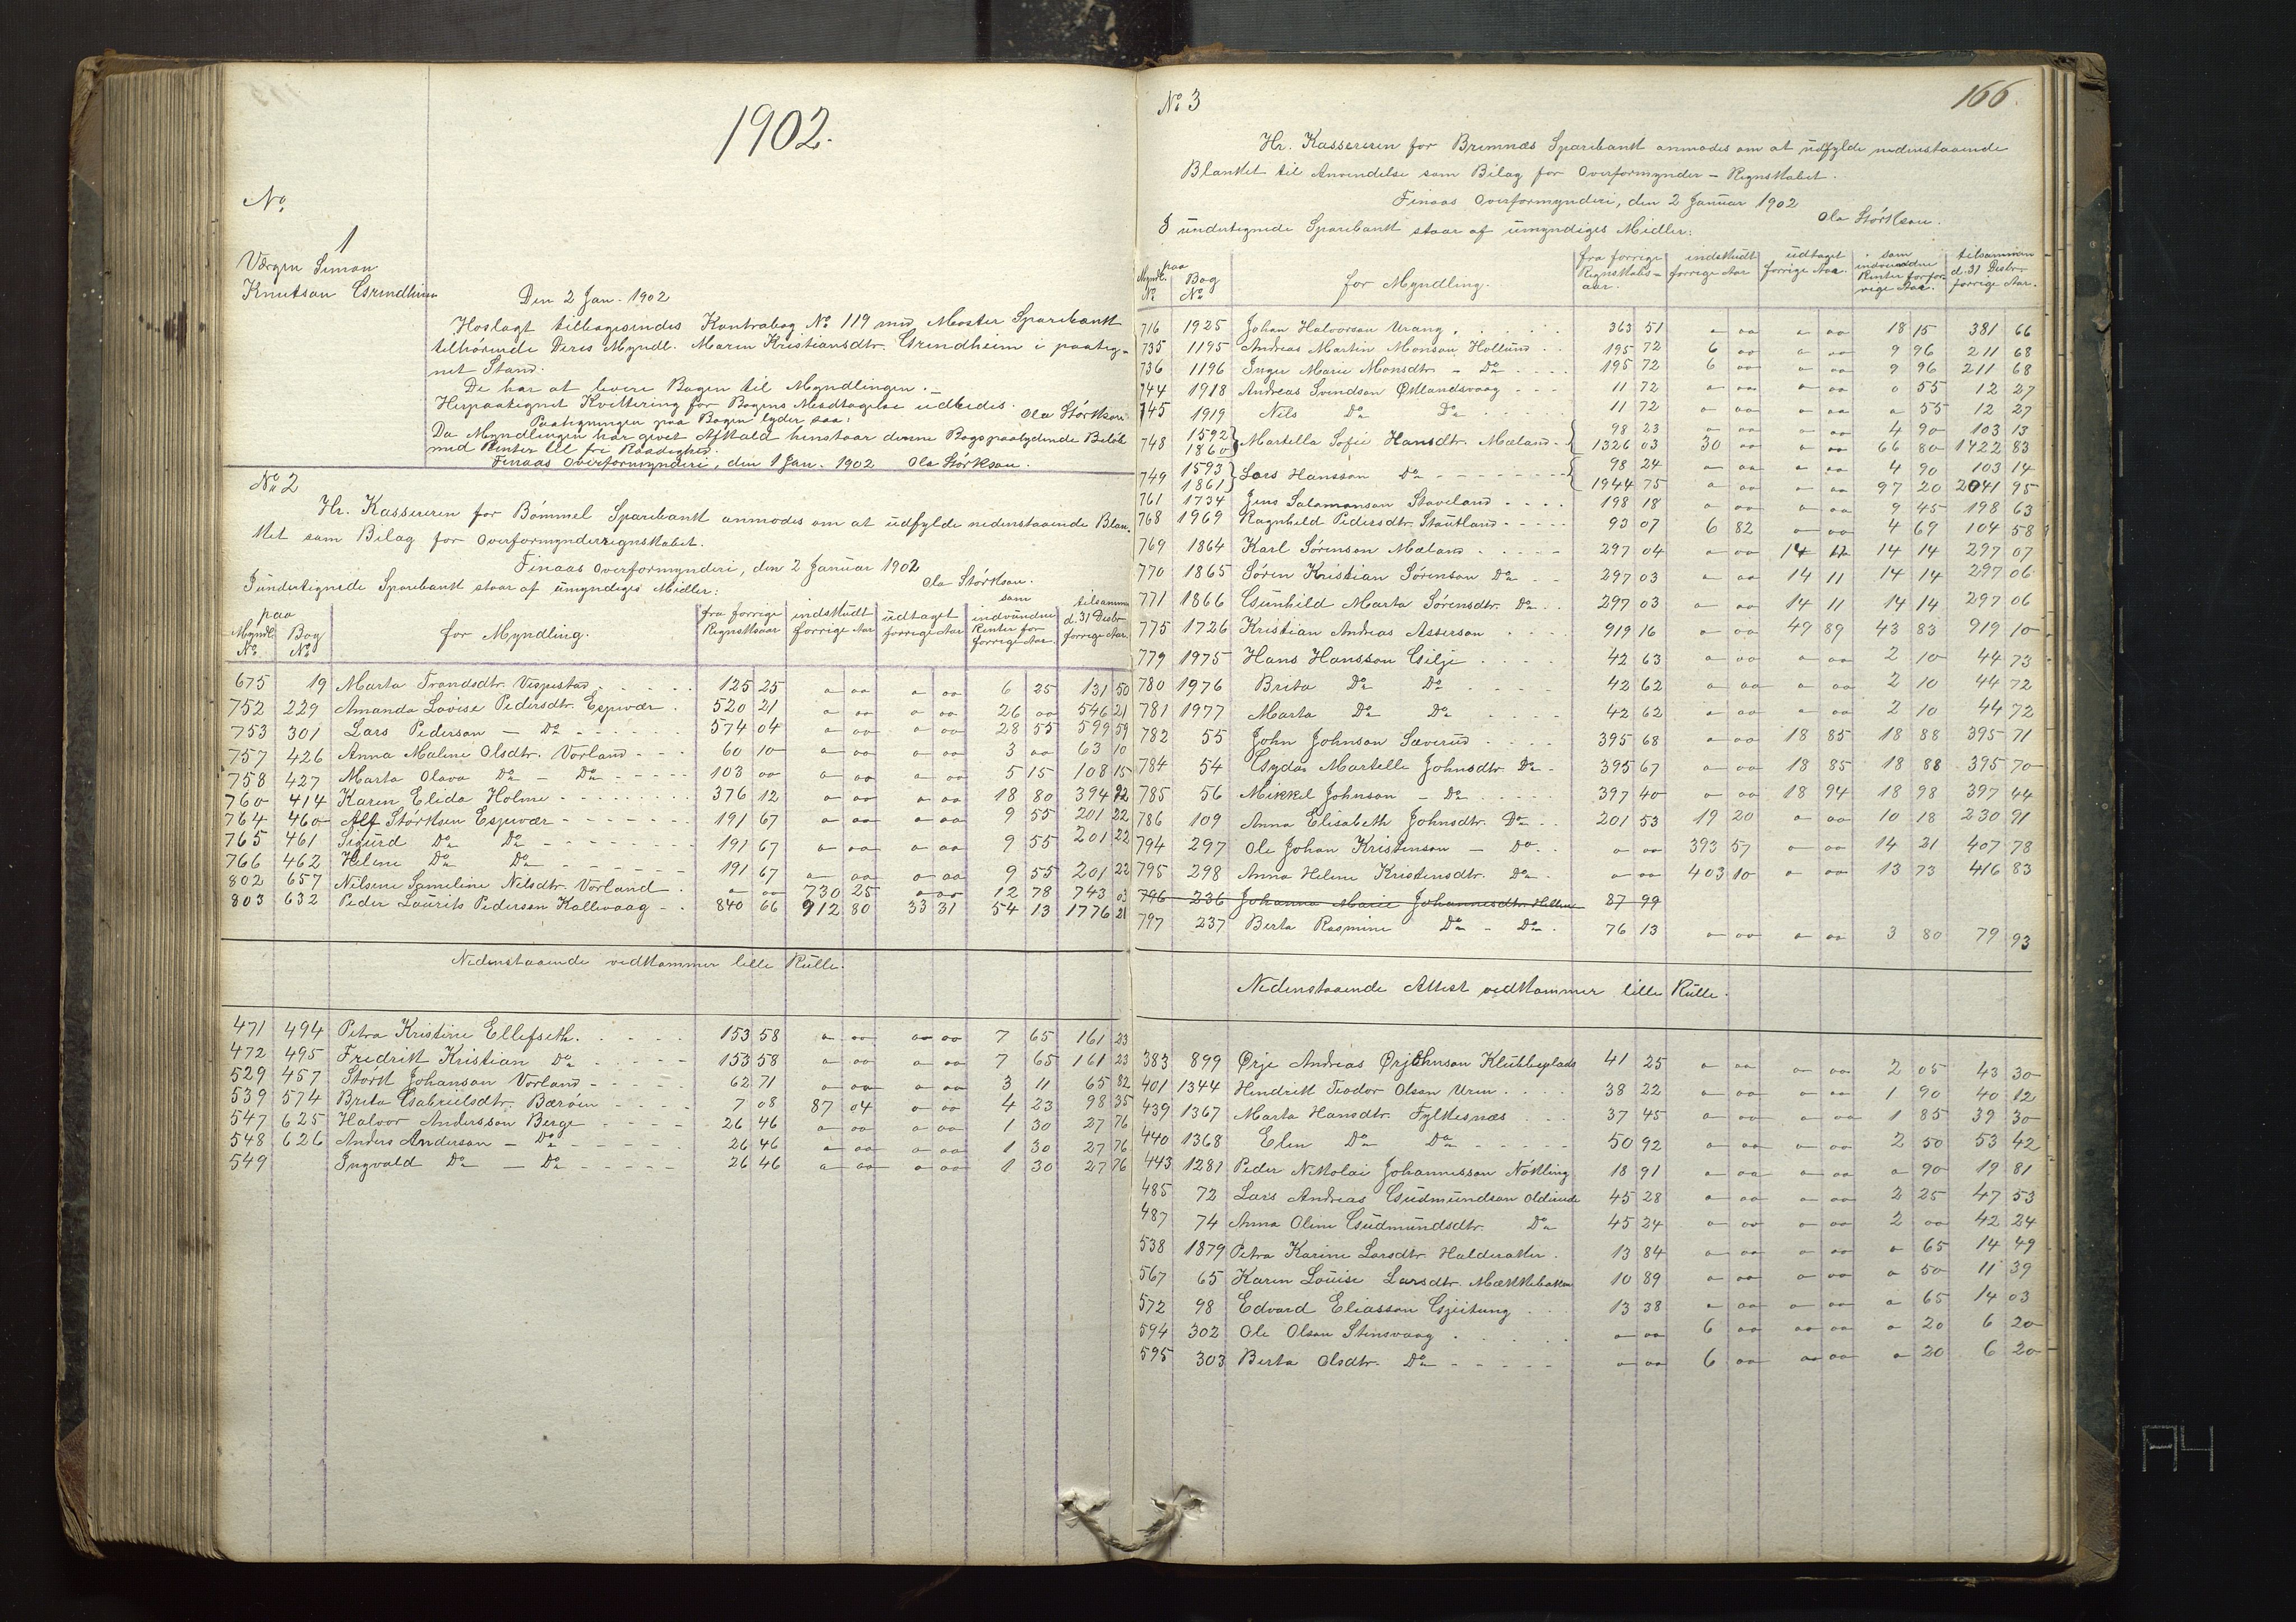 1902.
No
1
Værgen Simon
Knutson Grindheim
Den 2 Jan. 1902
Hoslagt tilbagesendes Kontrabog No 119 med Moster Sparebank
tilhørende Deres Myndl. Maren Kristiansdtr. Grindheim i paateg-
net Stand.
De har at levere Bogen til Myndlingen.
Herpaategnet Kvittering for Bogens Modtagelse udbedes.
Ola Størkson
Paategningen paa Bogen lyder saa:
Da Myndlingen har givet Afkald henstaar denne Bogs paalydende Beløb
med Renter til fri Raadighed.
Finaas Overformynderi, den 1 Jan. 1902 Ola Størkson.
No 2
Hr. Kassereren for Bømmel Sparebank anmodes om at udfylde nedenstaaende Blan-
ket som Bilag for Overformynderregnskabet.
Finaas Overformynderi, den 2 Januar 1902
Ola Størkson.
I undertegnede Sparebank staar af umyndiges Midler:
paa Myndl. No | Bog No | for Myndling. | fra forrige Regnskaar | indskudt forrige Aar | udtaget forrige Aar | som indvundne Renter for forrige Aar. | tilsamm. d. 31 Desbr. forrige Aar.
675 19 Marta Trondsdtr. Vespestad 125 25 " " " " 6 25 131 50
752 229 Amanda Lovise Pedersdtr. Espevær 520 21 " " " " 26 " 546 21
753 301 Lars Pederson - Do 574 04 " " " " 28 55 599 59
757 426 Anna Maline Olsdtr. Vorland 60 10 " " " " 3 " 63 10
758 427 Marta Olava Do - Do 103 " " " " " 5 15 108 15
760 414 Karen Elida Holme 376 12 " " " " 18 80 394 92
764 460 Alf Størksen Espevær 191 67 " " " " 9 55 201 22
765 461 Sigurd Do Do 191 67 " " " " 9 55 201 22
766 462 Helene Do Do 191 67 " " " " 9 55 201 22
802 657 Nilsine Sameline Nilsdtr. Vorland " " 730 25 " " 12 78 743 03
803 632 Peder Laurits Pederson Kallevaag 840 66 912 80 33 31 54 13 1776 21
Nedenstaaende vedkommer lille Rulle.
471 494 Petra Kristine Ellefseth. 153 58 " " " " 7 65 161 23
472 495 Fredrik Kristian Do 153 58 " " " " 7 65 161 23
529 457 Størk Johanson Vorland 62 71 " " " " 3 11 65 82
539 574 Brita Gabrielsdtr. Bærøen 7 08 87 04 " " 4 23 98 35
547 625 Halvor Andersson Berge 26 46 " " " " 1 30 27 76
548 626 Anders Anderson - Do 26 46 " " " " 1 30 27 76
549 Ingvald Do - Do 26 46 " " " " 1 30 27 76
No 3
166.
Hr. Kassereren for Bremnæs Sparebank anmodes om at udfylde nedenstaaende
Blanket til Anvendelse som Bilag for Overformynder-Regnskabet.
Finaas Overformynderi, den 2 Januar 1902
Ola Størkson.
I undertegnede Sparebank staar af umyndiges Midler:
paa Myndl. No | Bog No | for Myndling. | fra forrige Regnskabs-aar. | indskudt forrige Aar | udtaget forrige Aar. | som indvundne Renter for forrige Aar. | tilsammen d. 31 Desbr. forrige Aar.
716 1925 Johan Halvorson Urang 363 51 " " " " 18 15 381 66
735 1195 Andreas Martin Monson Hollund 195 72 6 " " " 9 96 211 68
736 1196 Inger Marie Monsdtr. - Do 195 72 6 " " " 9 96 211 68
744 1918 Andreas Svendson Østlandsvaag 11 72 " " " " " 55 12 27
745 1919 Nils Do Do 11 72 " " " " " 55 12 27
748 1592 98 23 " " " " 4 90 103 13
1860 Martella Sofie Hansdtr. Mæland 1326 03 30 " " " 66 80 1422 83
749 1593 98 24 " " " " 4 90 103 14
1861 Lars Hansson Do 1944 75 " " " " 97 20 2041 95
761 1734 Jens Salamonson Stavland 198 18 " " " " 9 45 198 63
768 1969 Ragnhild Pedersdtr. Stautland 93 07 6 82 " " 4 69 104 58
769 1864 Karl Sørenson Mæland 297 04 " " 14 11 14 14 297 07
770 1865 Søren Kristian Sørenson Do 297 03 " " 14 11 14 14 297 06
771 1866 Gunhild Marta Sørensdtr. Do 297 03 " " 14 11 14 14 297 06
775 1726 Kristian Andreas Asserson 919 16 " " 49 89 43 83 919 10
779 1975 Hans Hansson Gilje 42 63 " " " " 2 10 44 73
780 1976 Brita Do Do 42 62 " " " " 2 10 44 72
781 1977 Marta Do Do 42 62 " " " " 2 10 44 72
782 55 John Johnson Sæverud 395 68 " " 18 85 18 88 395 71
784 54 Gyda Martelle Johnsdtr. Do 395 67 " " 18 85 18 88 395 70
785 56 Mikkel Johnson - Do 397 40 " " 18 94 18 98 397 44
786 109 Anna Elisabeth Johnsdtr. Do 201 53 19 20 " " 10 18 230 91
794 297 Ole Johan Kristenson - Do " " 393 57 " " 14 21 407 78
795 298 Anna Helene Kristensdtr. Do " " 403 10 " " 13 73 416 83
796 236 Johanna Marie Johannesdtr. 87 99
797 237 Berta Rasmine Do - Do 76 13 " " " " 3 80 79 93
Nedenstaaende Attest vedkommer lille Rulle.
383 899 Ørje Andreas Ørjohnson Klubbeplads 41 25 " " " " 2 05 43 30
401 1344 Hendrik Teodor Olson Uren 38 22 " " " " 1 90 40 12
439 1367 Marta Hansdtr. Fylkesnæs 37 45 " " " " 1 85 39 30
440 1368 Elen Do Do 50 92 " " " " 2 50 53 42
443 1281 Peder Nikolai Johannesson Nøkling 18 91 " " " " " 90 19 81
485 72 Lars Andreas Gudmundson Odeinde 45 28 " " " " 2 25 47 53
487 74 Anna Oline Gudmundsdtr. Do 45 24 " " " " 2 " 42 24
538 1879 Petra Karine Larsdtr. Halderaker 13 84 " " " " " 65 14 49
567 65 Karen Louise Larsdtr. Mækkebakken 10 89 " " " " " 50 11 39
572 98 Edvard Eliasson Gjeitung 13 38 " " " " " 65 14 03
594 302 Ole Olson Stensvaag " " 6 " " " " 20 6 20
595 303 Berta Olsdtr. Do " " 6 " " " " 20 6 20